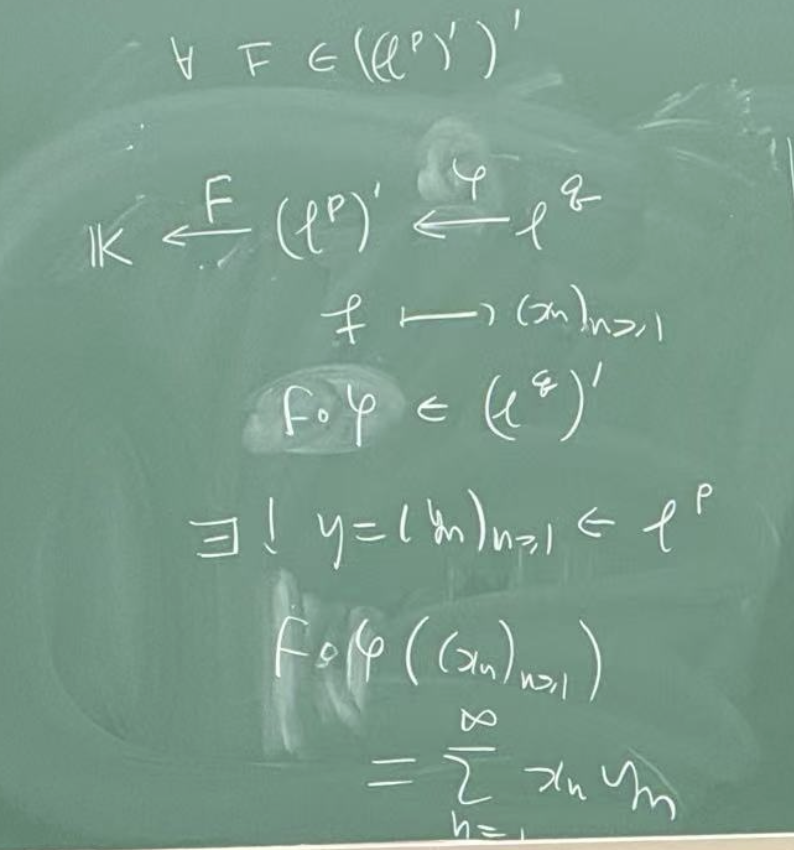 ∀ F ∈ ((ℓ^p)')'
𝕂 ←^F (ℓ^p)' ←^φ ℓ^q
f ⟼ (x_n)_{n≥1}
F∘φ ∈ (ℓ^q)'
∃! y = (y_n)_{n≥1} ∈ ℓ^p
F∘φ((x_n)_{n≥1})
= ∑_{n=1}^∞ x_n y_n